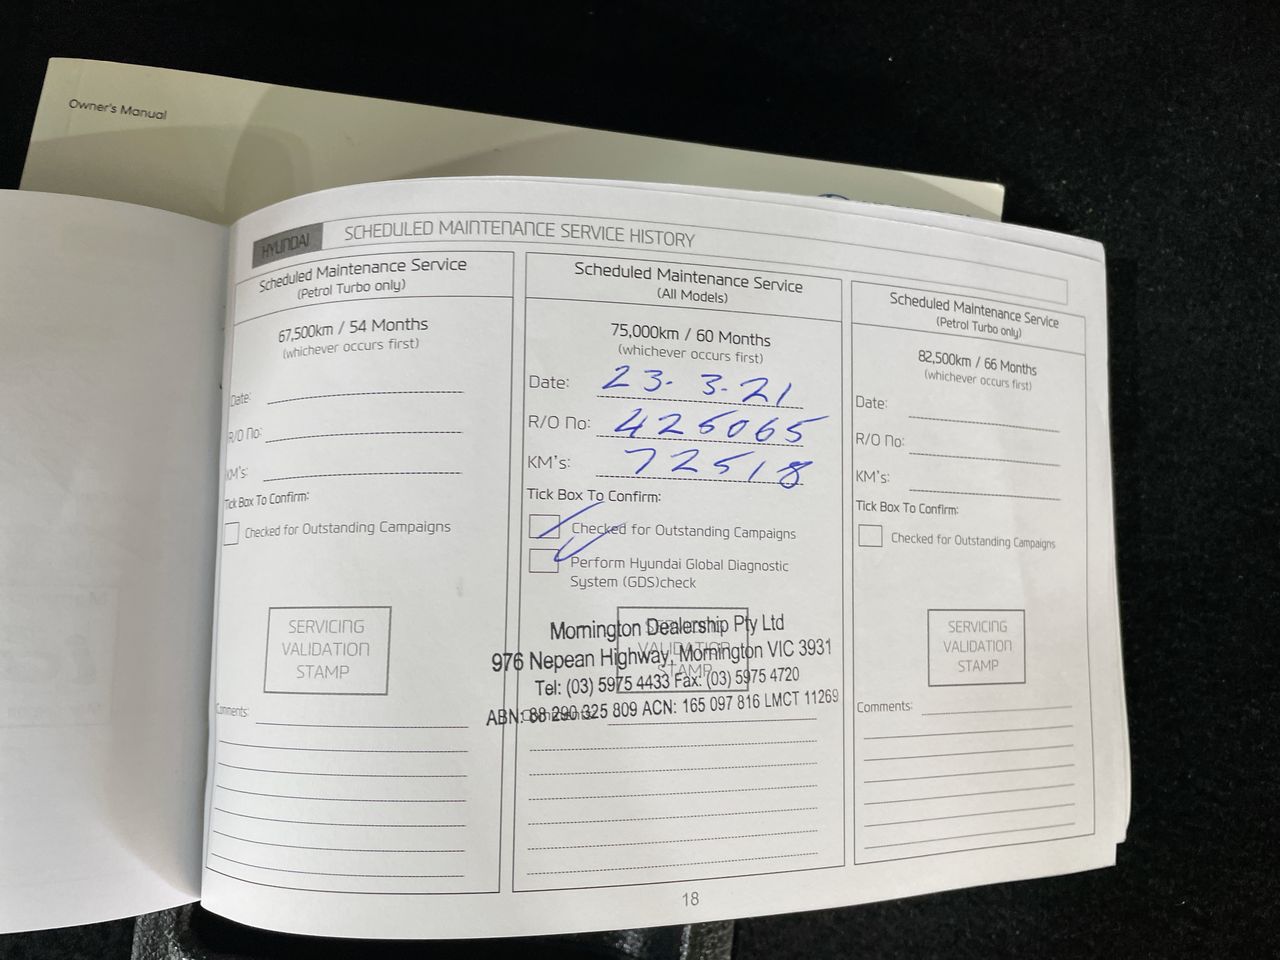 Owner's Manual
HYUNDAI
SCHEDULED MAINTENANCE SERVICE HISTORY
Scheduled Maintenance Service
(Petrol Turbo only)
67,500km / 54 Months
(whichever occurs first)
Date:
R/O No:
KM's:
Tick Box To Confirm:
Checked for Outstanding Campaigns
SERVICING
VALIDATION
STAMP
Comments:
Scheduled Maintenance Service
(All Models)
75,000km / 60 Months
(whichever occurs first)
Date: 23. 3. 21
R/O No: 425065
KM's: 72518
Tick Box To Confirm:
Checked for Outstanding Campaigns
Perform Hyundai Global Diagnostic
System (GDS)check
SERVICING
VALIDATION
STAMP
Mornington Dealership Pty Ltd
976 Nepean Highway, Mornington VIC 3931
Tel: (03) 5975 4433 Fax: (03) 5975 4720
ABN: 88 290 325 809 ACN: 165 097 816 LMCT 11269
Comments:
Scheduled Maintenance Service
(Petrol Turbo only)
82,500km / 66 Months
(whichever occurs first)
Date:
R/O No:
KM's:
Tick Box To Confirm:
Checked for Outstanding Campaigns
SERVICING
VALIDATION
STAMP
Comments:
18